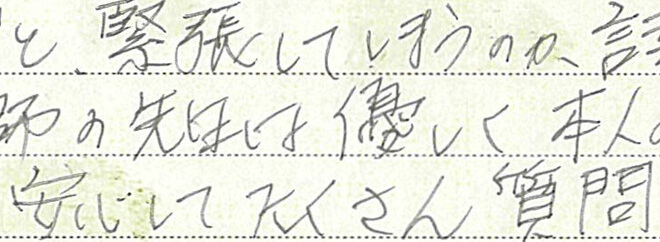 と、緊張してしまうのか、
師の先生は優しく本人の
安心してたくさん質問